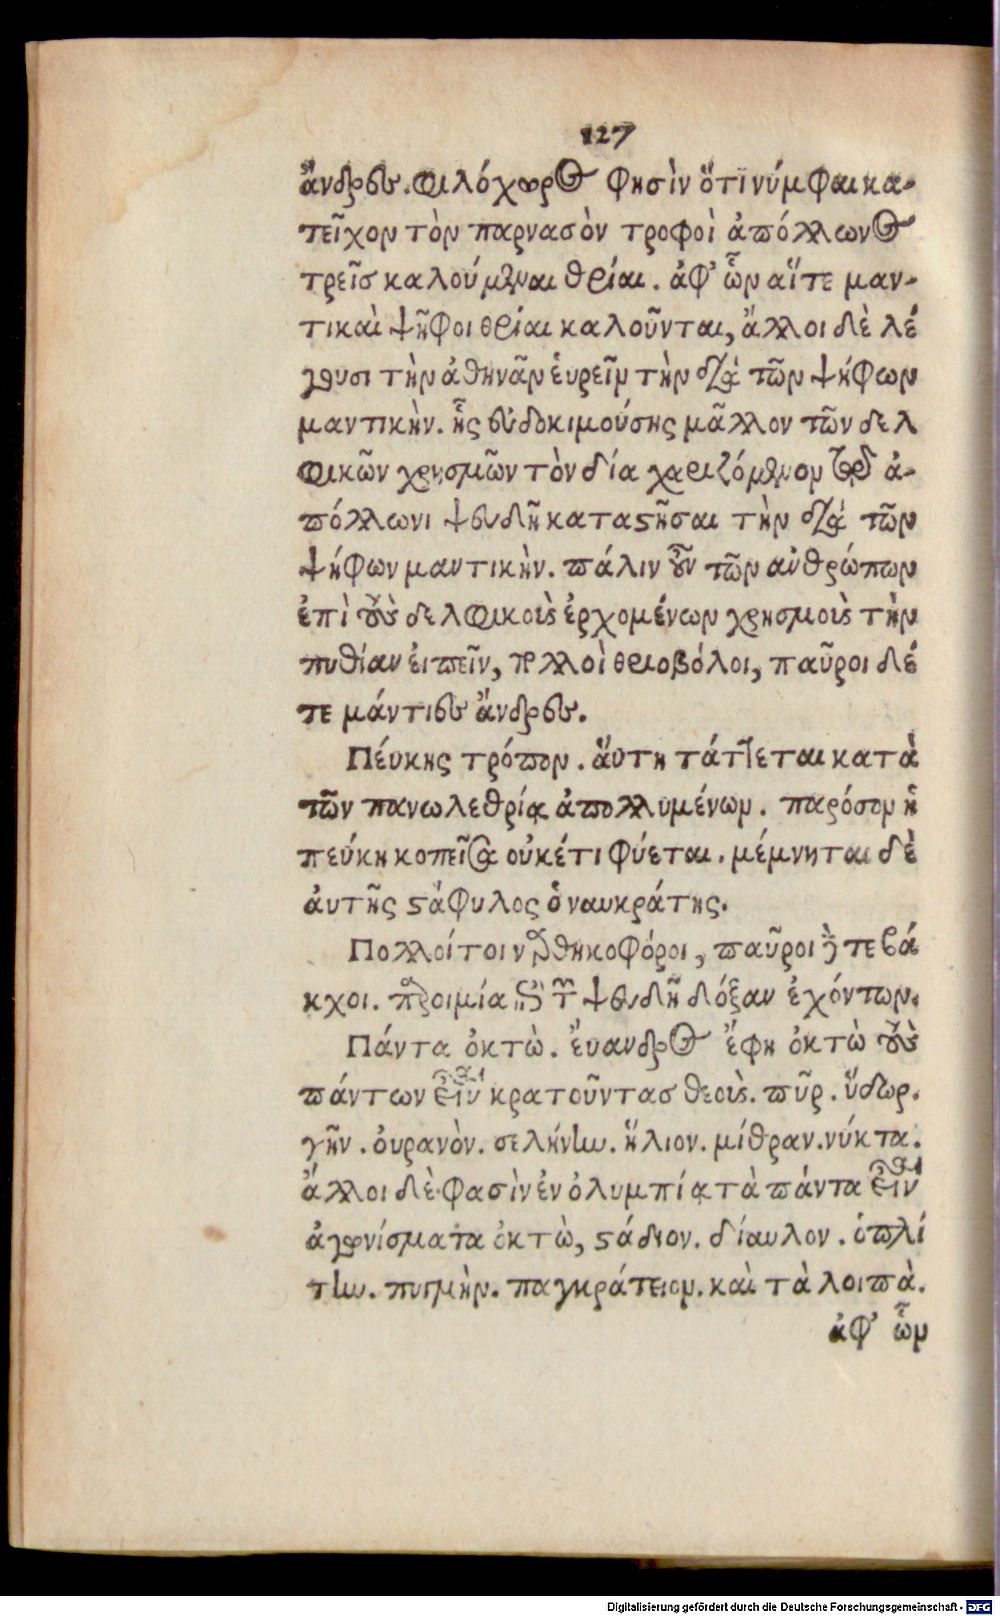 127
ἄνδρες. φιλόχορος φησὶν ὅτι νύμφαι κα-
τεῖχον τὸν παρνασὸν τροφοὶ ἀπόλλωνος
τρεῖσ καλούμεναι θρίαι. ἀφ’ ὧν αἵτε μαν-
τικαὶ ψῆφοι θρίαι καλοῦνται, ἄλλοι δὲ λέ
γουσι τὴν ἀθηνᾶν ἑυρεῖν τὴν διὰ τῶν ψήφων
μαντικὴν. ἧς εὐδοκιμούσης μᾶλλον τῶν δελ
φικῶν χρησμῶν τὸν δία χαριζόμενον τῷ ἀ-
πόλλωνι ψευδῆ καταστῆσαι τὴν διὰ τῶν
ψήφων μαντικὴν. πάλιν οὖν τῶν ανθρώπων
ἐπὶ τοὺς δελφικοὺς ἐρχομένων χρησμοὺς τὴν
πυθίαν ἐιπεῖν, πολλοὶ θριοβόλοι, παῦροι δέ
τε μάντιες ἄνδρες.
Πέυκης τρόπον. ἅυτη τάττεται κατὰ
τῶν πανωλεθρίᾳ ἀπολλυμένων. παρόσον ἡ
πεύκη κοπεῖσα οὐκέτι φύεται. μέμνηται δὲ
ἀυτῆς στάφυλος ὁ ναυκράτης.
Πολλοί τοι ναρθηκοφόροι, παῦροι δέ τε βά
κχοι. παροιμία ἐπὶ τῶν ψευδῆ δόξαν ἐχόντων.
Πάντα ὀκτὼ. ἔυανδρος ἔφη ὀκτὼ τοὺς
πάντων εἶναι κρατοῦντασ θεοὺς. πῦρ. ὕδωρ.
γῆν. ὀυρανὸν. σελήνην. ἥλιον. μίθραν. νύκτα.
ἄλλοι δὲ φασὶν ἐν ὀλυμπίᾳ τὰ πάντα εἶναι
ἀγωνίσματα ὀκτὼ, στάδιον. δίαυλον. ὁπλί
την. πυγμὴν. παγκράτειον. καὶ τὰ λοιπὰ.
ἀφ’ ὧν
Digitalisierung gefördert durch die Deutsche Forschungsgemeinschaft - DFG